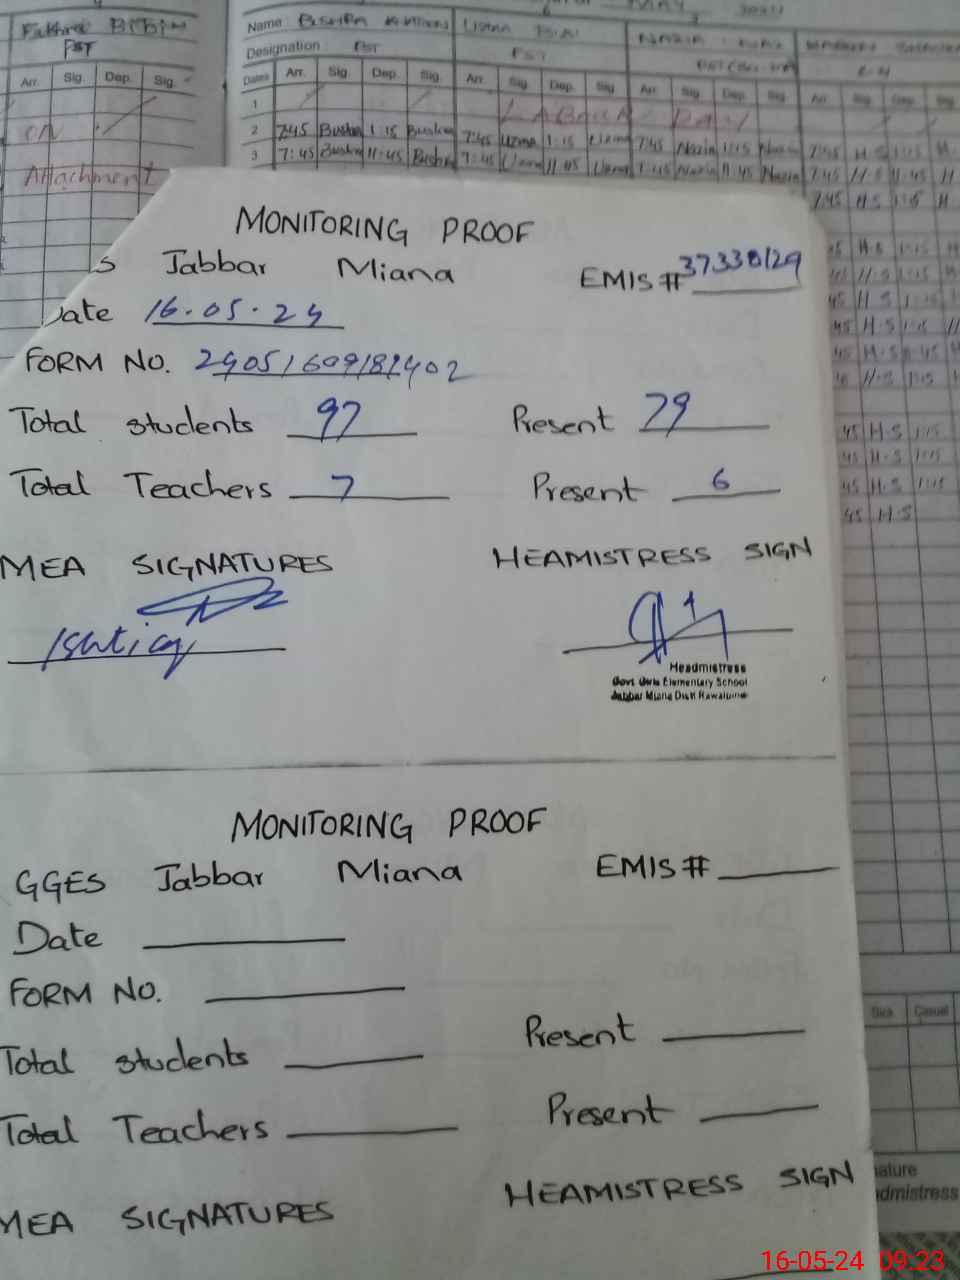 Fakhra BiBi
PST
Arr. Sig. Dep. Sig.
CN
Attachment
MAY
Name: BUSHRA
Designation: PST
PST
Dates Arr. Sig. Dep. Sig. Arr. Sig. Dep. Sig. Arr. Sig. Dep. Sig. Arr. Sig. Dep. Sig.
1 LABOUR DAY
2 7:45 Bushra 1:15 Bushra 7:45 Uzma 1:15 Uzma 7:45 Nazia 1:15 Nazia 7:45 H.S 1:15 H
3 7:45 Bushra 11:45 Bushra 7:45 Uzma 11:45 Uzma 7:45 Nazia 11:45 Nazia 7:45 H.S 11:45 H
7:45 H.S 1:15 H
MONITORING PROOF
S Jabbar Miana EMIS # 37330129
Date 16.05.24
FORM NO. 24051609181402
Total students 97 Present 79
Total Teachers 7 Present 6
MEA SIGNATURES HEAMISTRESS SIGN
Ishtiaq
Headmistress
Govt Girls Elementary School
Jabbar Miana Distt Rawalpindi
MONITORING PROOF
GGES Jabbar Miana EMIS #
Date
FORM NO.
Total students Present
Total Teachers Present
MEA SIGNATURES HEAMISTRESS SIGN
Sick Casual
nature
admistress
16-05-24 09:23